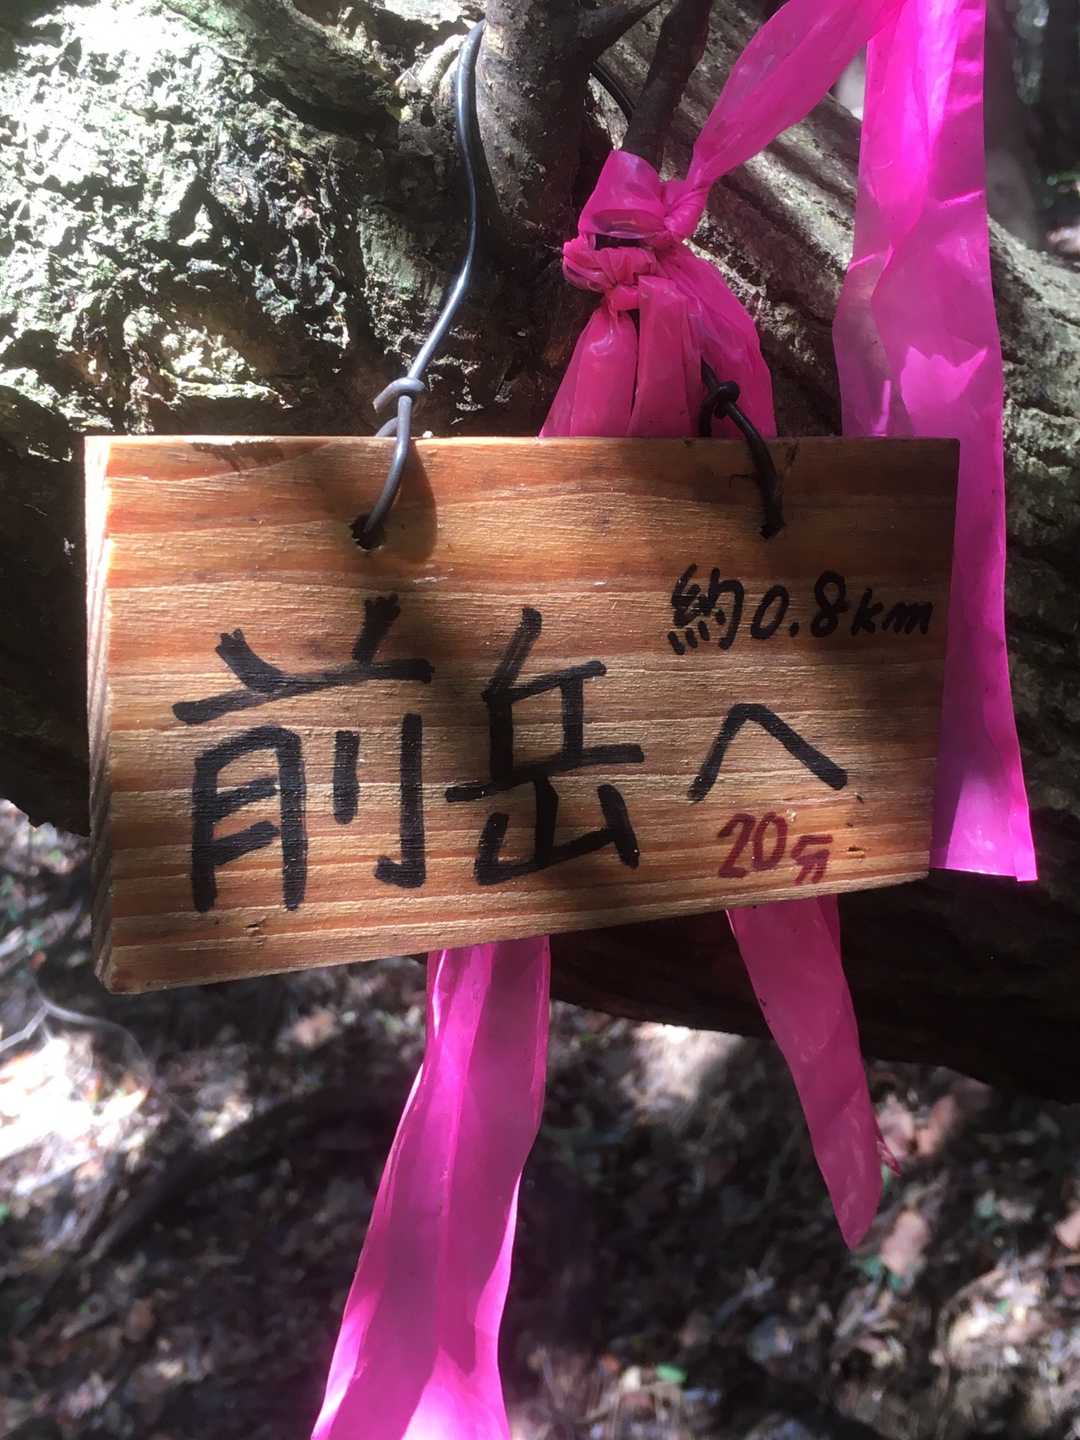 約0.8km
前岳へ
20分